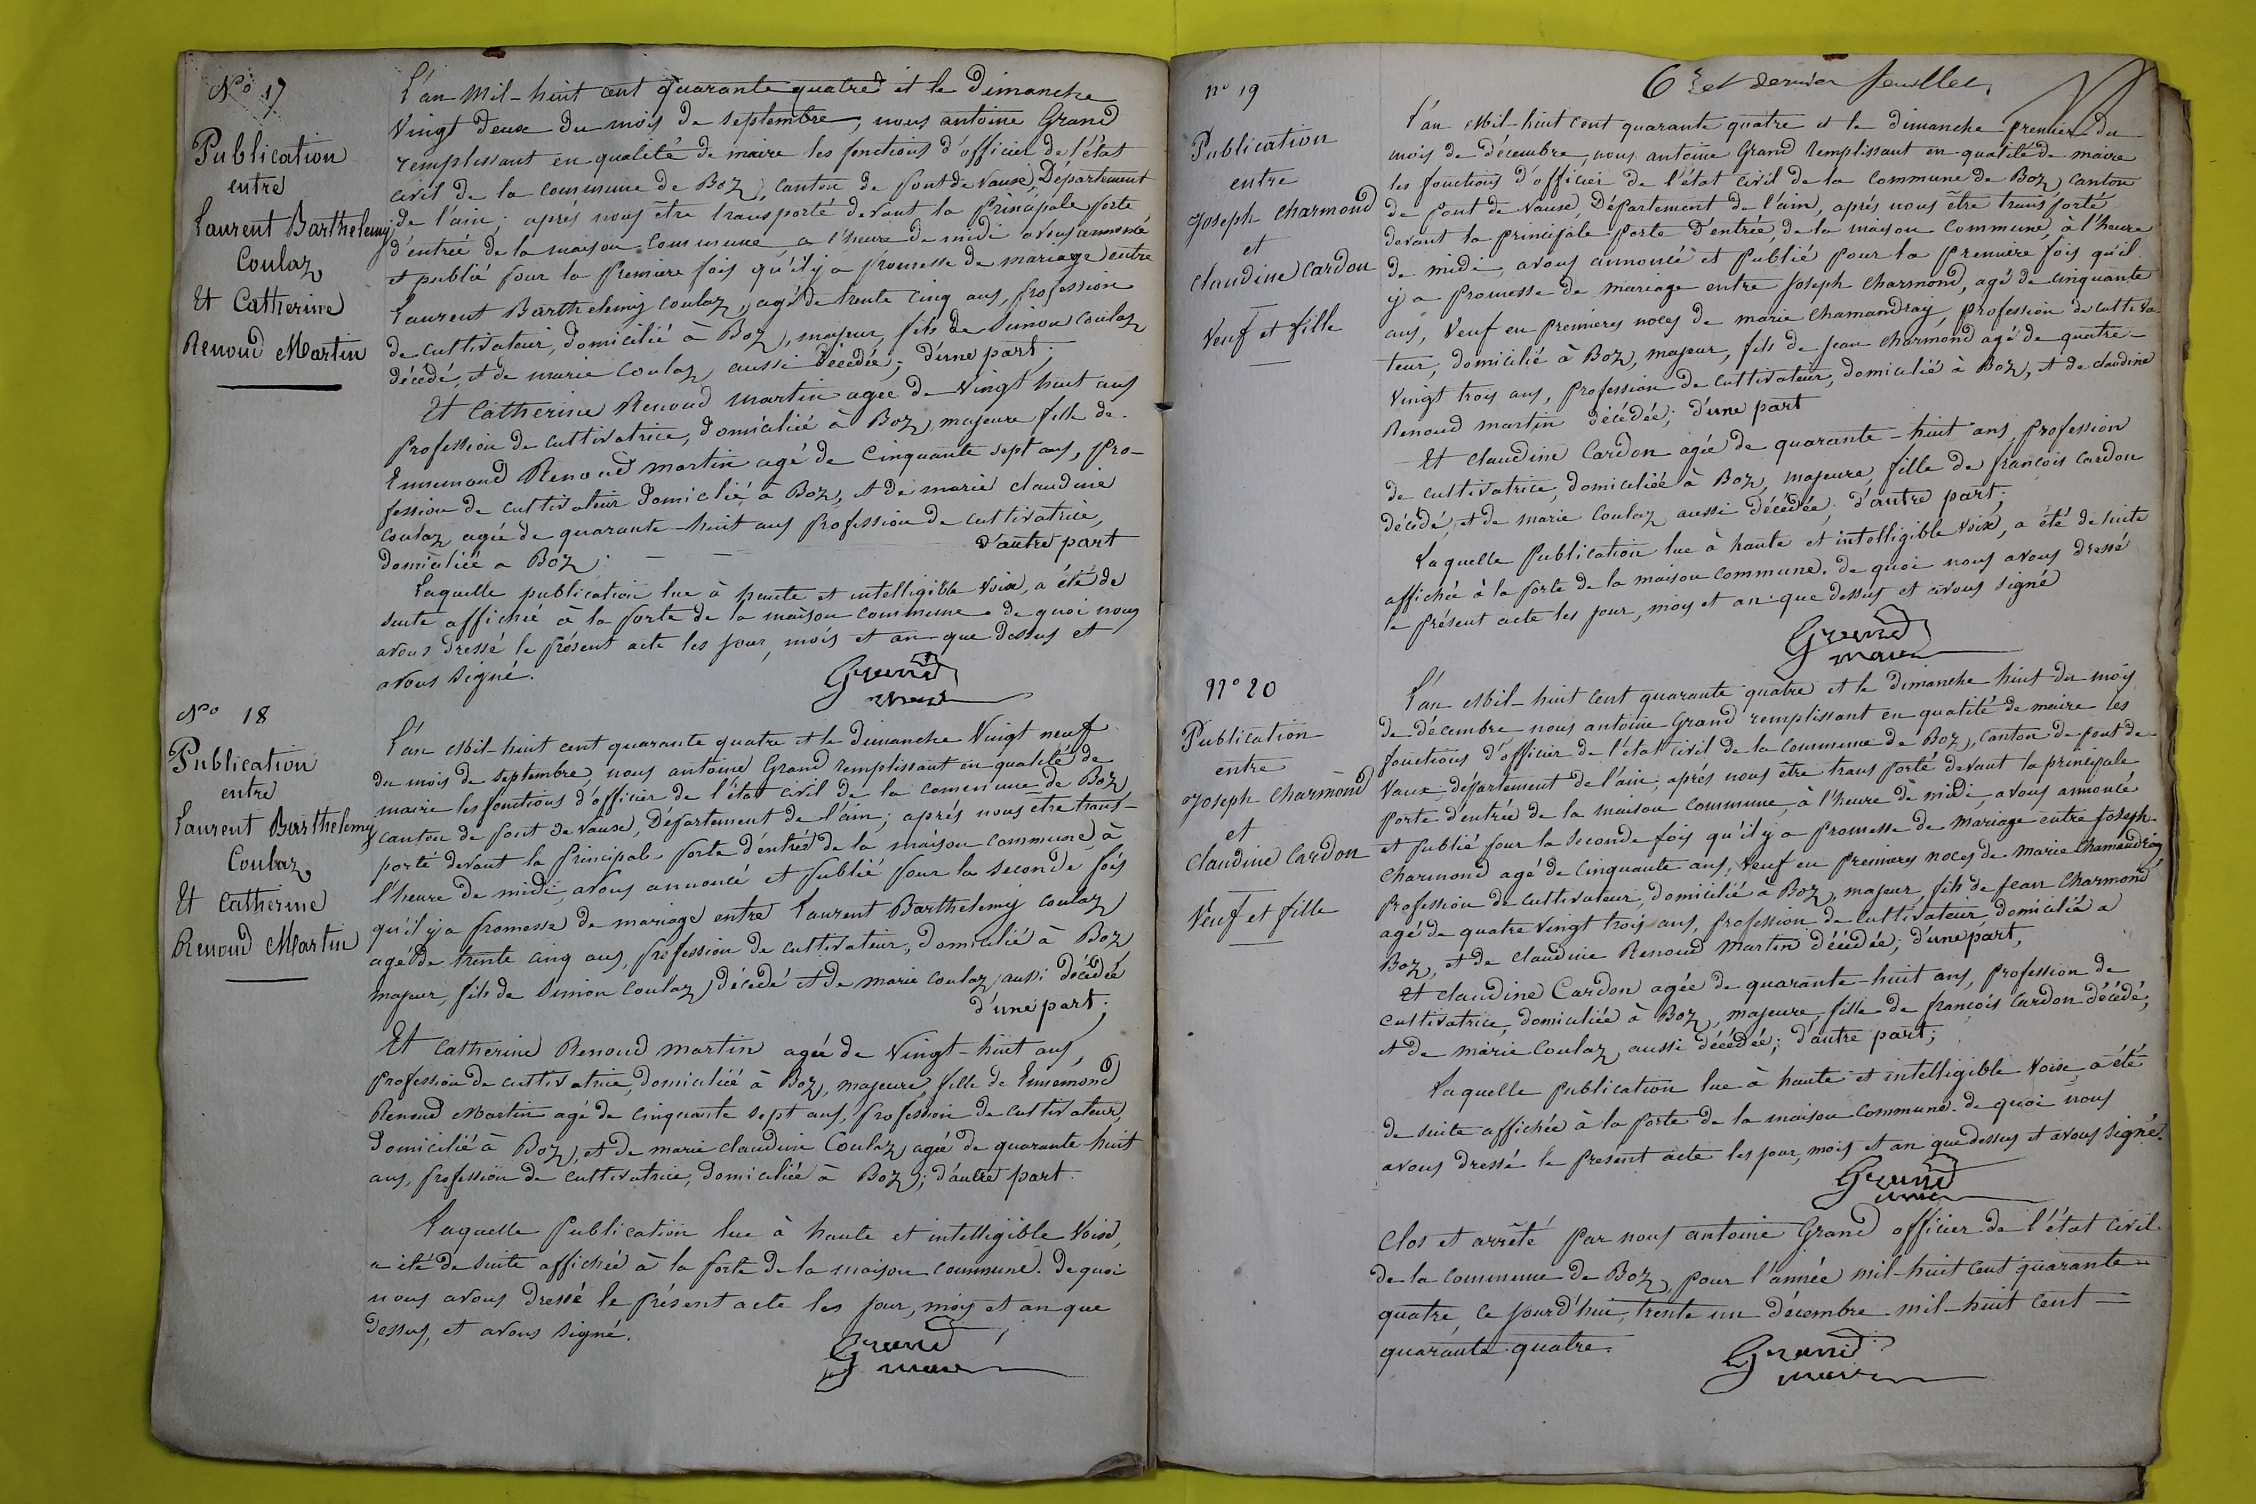 N° 17
Publication
entre
Laurent Barthelemy
Coulaz
Et Catherine
Renoud Martin
L'an Mil-huit cent quarante quatre et le dimanche
Vingt deux du mois de septembre, nous antoine Grand
remplissant en qualité de maire les fonctions d'officier de l'état
civil de la commune de Boz, canton de pont de Vaux, Département
de l'ain; aprés nous être transporté devant la Principale porte
d'entrée de la maison commune, a l'heure de midi avons annoncé
et publié pour la premiere fois qu'il y a promesse de mariage entre
Laurent Barthelemy coulaz, agé de trente cinq ans, profession
de cultivateur, domicilié à Boz, majeur, fils de Simon Coulaz
décédé, et de marie Coulaz aussi décédée; d'une part;
Et Catherine Renoud martin agée de Vingt huit ans
profession de cultivatrice, domiciliée à Boz, majeure fille de
Ennemond Renoud martin agé de Cinquante sept ans, pro-
fession de cultivateur domicilié à Boz, et de marie claudine
coulaz agée de quarante-huit ans profession de cultivatrice,
domiciliée a Boz; d'autre part
Laquelle publication lue à haute et intelligible voix, a été de
suite affichée à la porte de la maison commune. de quoi nous
avons dressé le présent acte les jour, mois et an que dessus et
avons signé.
Grand
maire
N° 18
Publication
entre
Laurent Barthelemy
Coulaz
Et Catherine
Renoud Martin
L'an Mil-huit cent quarante quatre et le dimanche Vingt neuf
du mois de septembre, nous antoine Grand remplissant en qualité de
maire les fonctions d'officier de l'état civil de la commune de Boz
canton de pont de Vaux, Département de l'ain; aprés nous être trans-
porté devant la principale porte d'entrée de la maison commune, à
l'heure de midi, avons annoncé et publié pour la seconde fois
qu'il y a promesse de mariage entre Laurent Barthelemy coulaz
agé de trente cinq ans, profession de cultivateur, domicilié à Boz
majeur, fils de Simon Coulaz décédé et de marie coulaz aussi décédée
d'une part;
Et catherine Renoud martin agée de Vingt-huit ans,
profession de cultivatrice, domiciliée à Boz, majeure, fille de Ennemond
Renoud Martin agé de cinquante sept ans, profession de cultivateur,
domicilié à Boz, et de marie claudine Coulaz agée de quarante huit
ans, profession de cultivatrice, domiciliée à Boz; d'autre part.
Laquelle Publication lue à haute et intelligible Voix,
a été de suite affichée à la porte de la maison commune. De quoi
nous avons dressé le présent acte les jour, mois et an que
dessus, et avons signé.
Grand
maire
6e et dernier feuillet.
n° 19
Publication
entre
Joseph Charmond
et
Claudine Cardon
Veuf et fille
L'an Mil-huit cent quarante quatre et le dimanche premier du
mois de décembre, nous antoine Grand remplissant en qualité de maire
les fonctions d'officier de l'état civil de la commune de Boz, canton
de pont de Vaux, Département de l'ain, aprés nous être transporté
devant la principale porte D'entrée, de la maison Commune, à l'heure
de midi, avons annoncé et publié pour la premiere fois qu'il
y a promesse de mariage entre Joseph Charmond, agé de cinquante
ans, Veuf en premieres noces de marie Chamandray, profession de cultiva-
teur, domicilié à Boz, majeur, fils de Jean Charmond agé de quatre-
Vingt trois ans, profession de cultivateur, domicilié à Boz, et de claudine
Renoud martin décédée; d'une part
Et claudine Cardon agée de quarante-huit ans, profession
de cultivatrice, domiciliée à Boz, majeure, fille de francois Cardon
décédé, et de marie Coulaz aussi décédée; d'autre part;
Laquelle Publication lue à haute et intelligible Voix, a été de suite
affichée à la porte de la maison commune. de quoi nous avons dressé
le présent acte les jour, mois et an que dessus et avons signé
Grand
maire
N° 20
Publication
entre
Joseph Charmond
et
Claudine Cardon
Veuf et fille
L'an Mil-huit cent quarante quatre et le dimanche huit du mois
de décembre, nous antoine Grand remplissant en qualité de maire les
fonctions d'officier de l'état civil de la Commune de Boz, Canton de pont de
Vaux, département de l'ain, aprés nous être transporté devant la principale
porte d'entrée de la maison commune, à l'heure de midi, avons annoncé
et publié pour la seconde fois qu'il y a promesse de Mariage entre Joseph
Charmond agé de Cinquante ans, Veuf en premieres noces de Marie Chamandray
profession de Cultivateur, domicilié à Boz, majeur, fils de Jean Charmond
agé de quatre Vingt trois ans, profession de cultivateur, domicilié a
Boz, et de claudine Renoud Martin décédée; d'une part,
Et claudine Cardon agée de quarante-huit ans, profession de
cultivatrice, domiciliée à Boz, majeure, fille de francois Cardon décédé,
et de marie Coulaz aussi décédée; d'autre part;
Laquelle publication lue à haute et intelligible Voix, a été
de suite affichée à la porte de la maison commune. de quoi nous
avons dressé le present acte les jour, mois et an que dessus et avons signé.
Grand
maire
Clos et arrêté par nous antoine Grand officier de l'état civil
de la commune de Boz, pour l'année mil-huit cent quarante
quatre, ce jourd'hui, trente un décembre mil-huit cent
quarante quatre.
Grand
maire